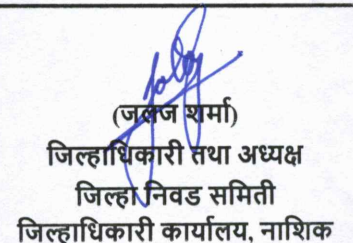 (जलज शर्मा)
जिल्हाधिकारी तथा अध्यक्ष
जिल्हा निवड समिती
जिल्हाधिकारी कार्यालय, नाशिक